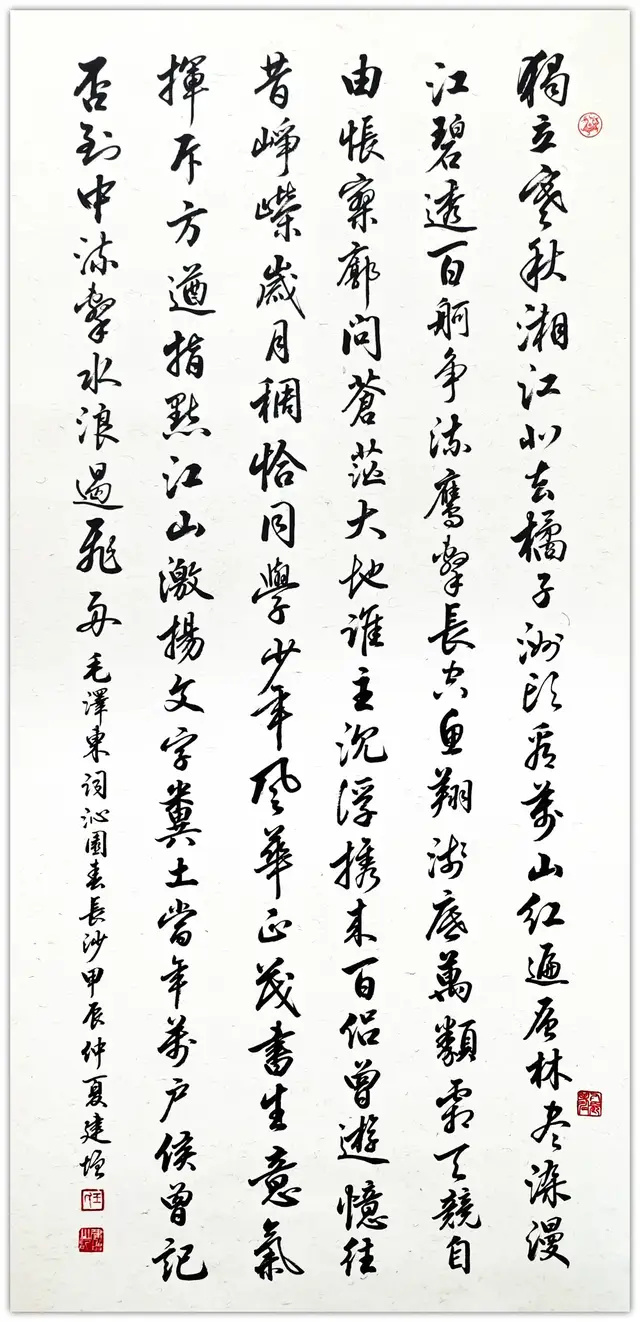 獨立寒秋湘江北去橘子洲頭看萬山紅遍層林盡染漫
江碧透百舸争流鷹擊長空魚翔淺底萬類霜天競自
由悵寥廓問蒼茫大地誰主沉浮攜來百侣曾遊憶往
昔崢嶸歲月稠恰同學少年風華正茂書生意氣
揮斥方遒指點江山激揚文字糞土當年萬户侯曾記
否到中流擊水浪遏飛舟毛澤東詞沁園春長沙甲辰仲夏建增